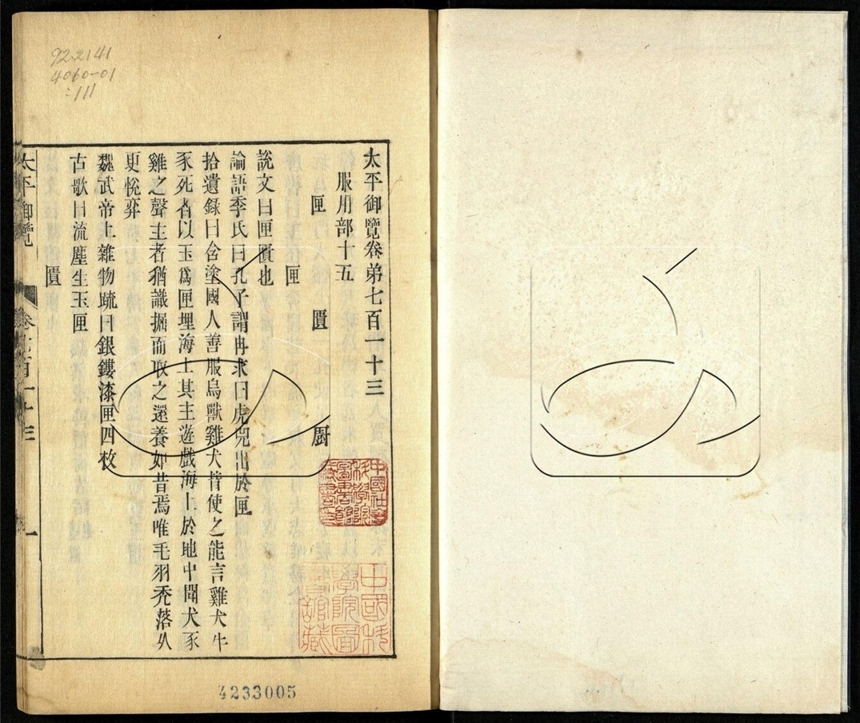 太平御覽卷第七百一十三
服用部十五
匣 匣 匱 厨
說文曰匣匱也
論語季氏曰孔子謂冉求曰虎兕出於匣
拾遺錄曰含塗國人善服鳥獸雞犬皆使之能言雞犬牛
豕死者以玉爲匣埋海上其主遊戲海上於地中聞犬豕
雞之聲主者猶識掘而取之還養如昔焉唯毛羽禿落久
更悅弈
魏武帝上雜物疏曰銀鏤漆匣四枚
古歌曰流塵生玉匣
匱
太平御覽 卷七百一十三 一
92.2141
4060-01
:111
4233005